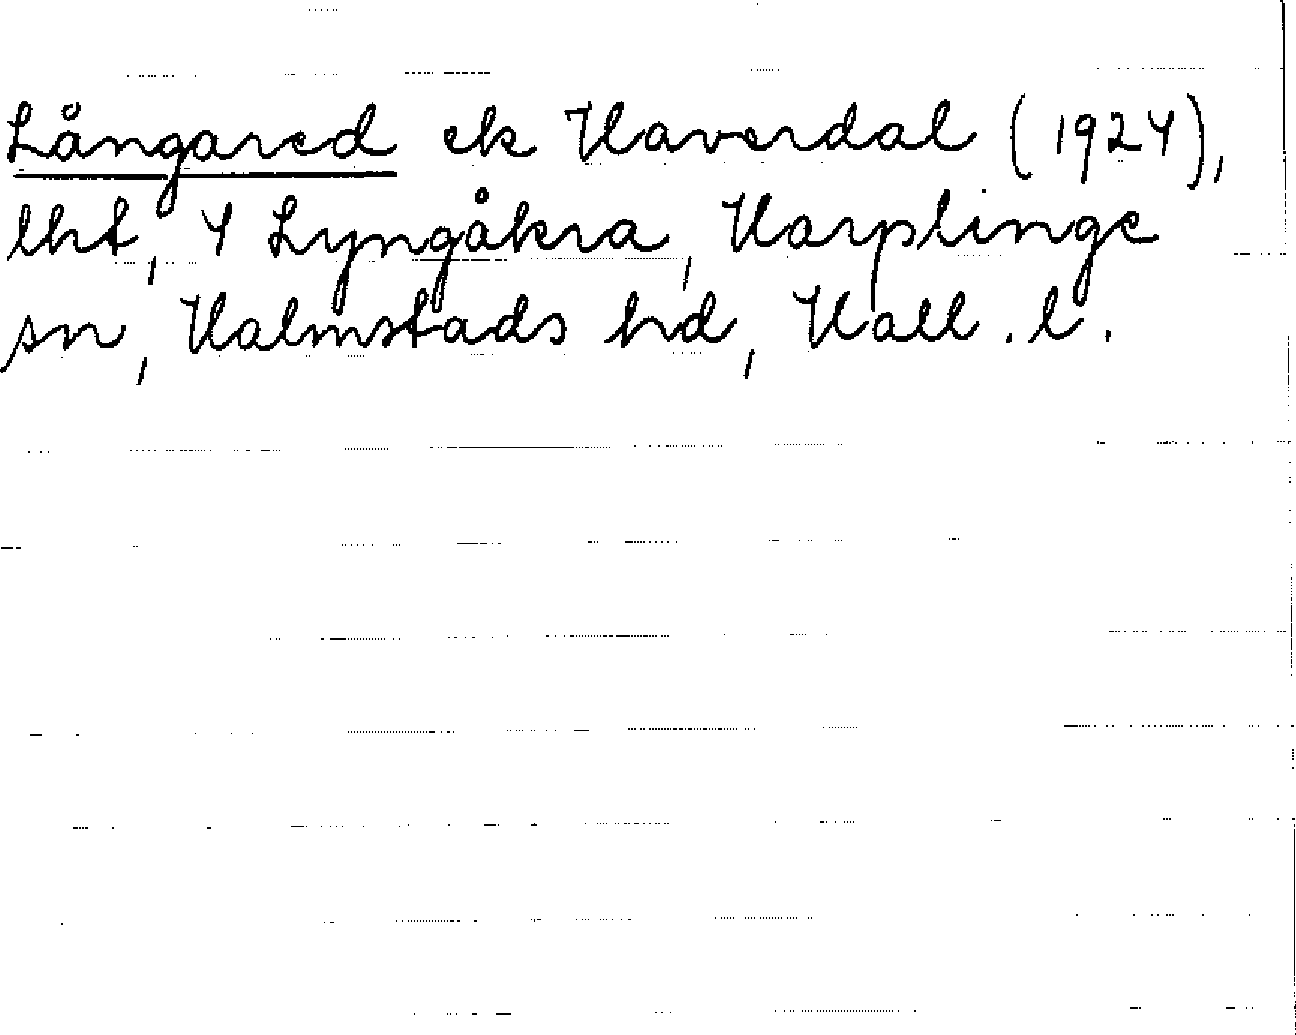 Långared ek Haverdal (1924),
lht, 4 Lyngåkra, Harplinge
sn, Halmstads hd, Hall. l.